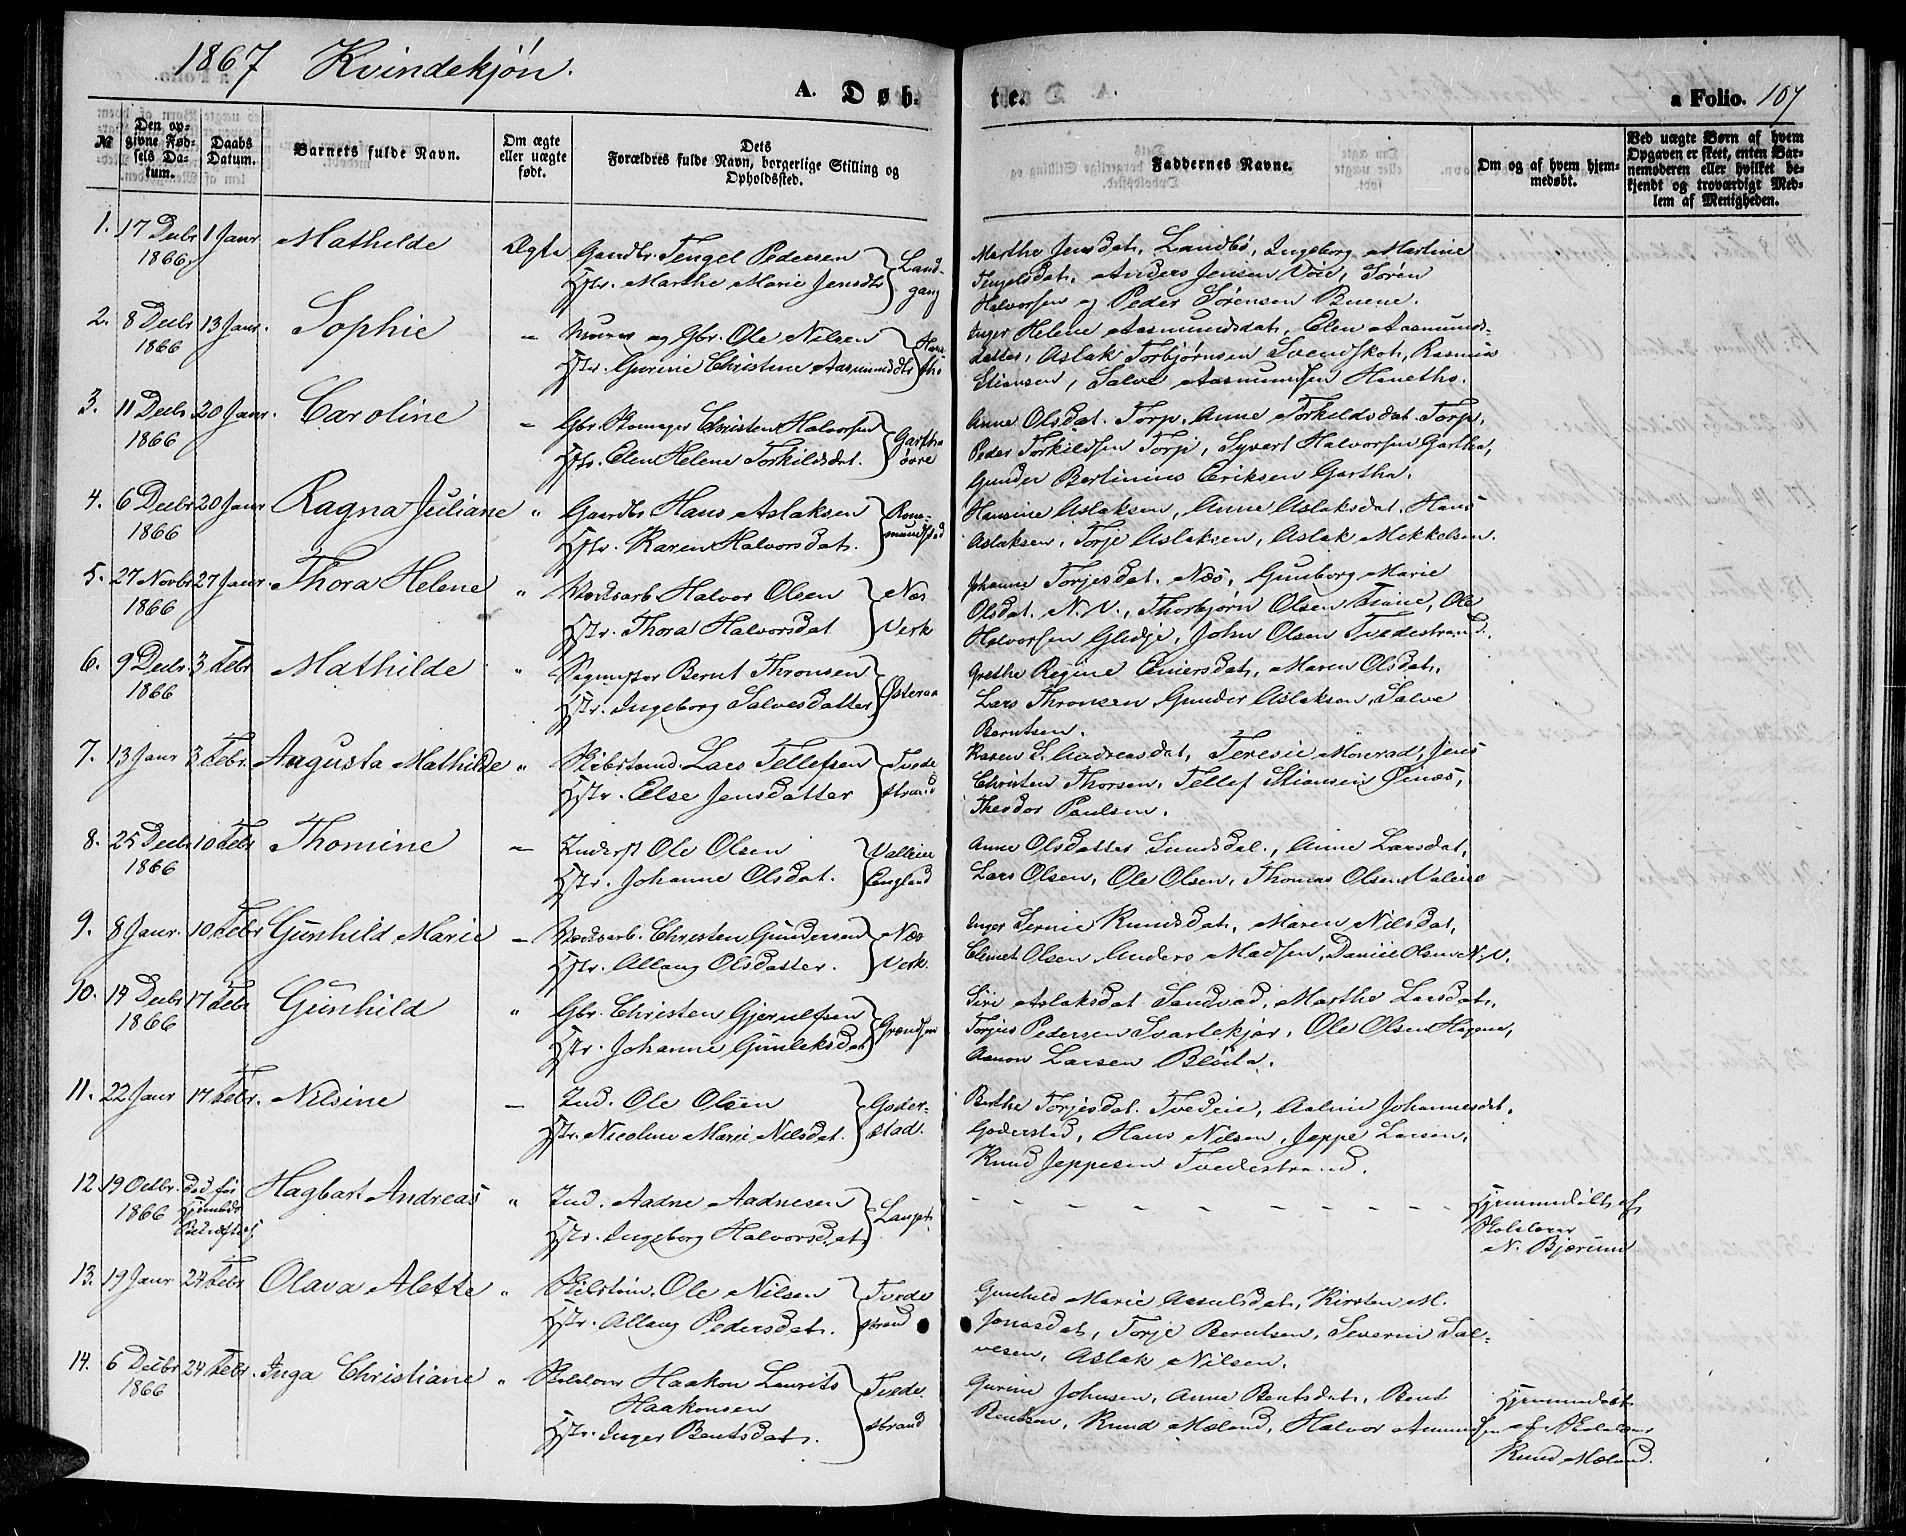 1867 Kvindekjøn.
A. Døb-
te.
a Folio. 107
№
Den op-
givne Fød-
sels Da-
tum.
Daabs
Datum.
Barnets fulde Navn.
Om ægte
eller uægte
født.
Dets
Forældres fulde Navn, borgerlige Stilling og
Opholdssted.
Faddernes Navne.
Om og af hvem hjem-
medøbt.
Ved uægte Børn af hvem
Opgaven er skeet, enten Bar-
nemoderen eller hvilket be-
kjendt og troværdigt Med-
lem af Menigheden.
1. 17 Decbr 1 Janr Mathilde Ægte Gaardbr. Tengel Pedersen Land-
1866
Hstr. Marthe Marie Jensdtr gang
Marthe Jensdat. Landbø, Ingeborg Martine
Tengelsdat. Anders Jensen Voie, Søren
Halvorsen og Peder Sørensen Buene.
2. 8 Decbr 13 Janr. Sophie " og Gbr. Ole Nilsen
1866
Hstr. Gurine Christine Aasmundsdtr
Inger Helene Aasmundsdat. Elen Aasmunds-
datter, Aslak Torbjørnsen Svendskot, Rasmus
Stiansen, Salve Aasmundsen Hanetho.
3. 11 Decbr 20 Janr. Caroline " Gbr. Skomager Christen Halvorsen Gartha
1866
Hstr. Elen Helene Torkildsdat. øvre
Anne Olsdat. Torp, Anne Torkildsdat. Torp,
Peder Torkildsen Torp, Syvert Halvorsen Gartha,
Gunder Bertinius Eriksen Gartha.
4. 6 Decbr 20 Janr Ragna Juliane " Gaardbr Hans Aslaksen Rom-
1866
Hstr. Karen Halvorsdat. mundstad
Hansine Aslaksen, Anne Aslaksdat. Hans
Aslaksen, Torje Aslaksen, Aslak Mekkelsen.
5. 27 Novbr 27 Janr. Thora Helene " Værksarb. Halvor Olsen Næs
1866
Hstr. Thora Halvorsdat Verk
Johanne Torjesdat. Næs, Gunborg Marie
Olsdat. N. V., Thorbjørn Olsen Tiane, Ole
Halvorsen Glidje, John Olsen Tvedestrand.
6. 9 Decbr. 3 Febr Mathilde " Bernt Thronsen Østeraa
1866
Hstr. Ingeborg Salvesdatter
Grethe Regine Einersdat. Maren Olsdat.
Lars Thronsen, Gunder Aslaksen, Salve
Berntsen.
7. 13 Janr 3 Febr. Augusta Mathilde " Skibstømd. Lars Tellefsen Tvede
Hstr. Else Jensdatter strand
Karen S. Andreasdat, Teresie Monrad, Jens
Christen Thorsen, Tellef Stiansen Øinæs,
Theodor Paulsen.
8. 25 Decbr 10 Febr Thomine " Inderst Ole Olsen Valleie
1866
Hstr. Johanne Olsdat. Eengland
Anne Olsdatter Lundsdal., Anne Larsdat,
Lars Olsen, Ole Olsen, Thomas Olsen Valeie
9. 8 Janr. 10 Febr Gunhild Marie " Værksarb. Christen Gundersen Næs
Hstr. Allaug Olsdatter. Verk.
Inger Knudsdat. Maren Nilsdat,
Clemet Olsen Anders Madsen, Daniel Olsen N. V.
10. 19 Decbr 17 Febr Gunhild " Gbr. Christen Gjerulfsen
1866
Hstr. Johanne Gunleksdat
Siri Aslaksdat Sandvad, Marthe Larsdat,
Torjus Pedersen Svartekjær, Ole Olsen Hagene,
Aanon Larsen Bløita.
11. 22 Janr 17 Febr. Nilsine " Ind. Ole Olsen Goder-
Hstr. Nicoline Marie Nilsdat. stad.
Berthe Torjesdat. Tvedeie, Johannesdat.
Goderstad, Hans Nilsen, Jeppe Larsen,
Knud Jeppesen Tvedestrand.
12. 19 Octbr. død før
1866
Hagbart Andreas " Ind. Aadne Aadnesen Langst.
Hstr. Ingeborg Halvorsdat
Hjemmedøbt af
Skolelærer
N. Bjørund
13. 19 Janr 24 Febr Olava Alette " Skibstøm. Ole Nilsen Tvede
Hstr. Allaug Pedersdat. strand
Gunhild Marie Assulsdat, Kirsten M.
Jonasdat, Torje Berntsen, Severin Sal-
vesen, Aslak Nilsen.
14. 6 Decbr 24 Febr. Inga Christiane " Skolelærer Haakon Laurits Tvede
1866
Haakonsen strand
Hstr. Inger Bentsdat.
Gurine Johnsen, Anne Bentsdat, Bent
Bentsen, Knud Mæland, Halvor Amundsen
Hjemmedøbt
af Skolelærer
Knud Mæland.